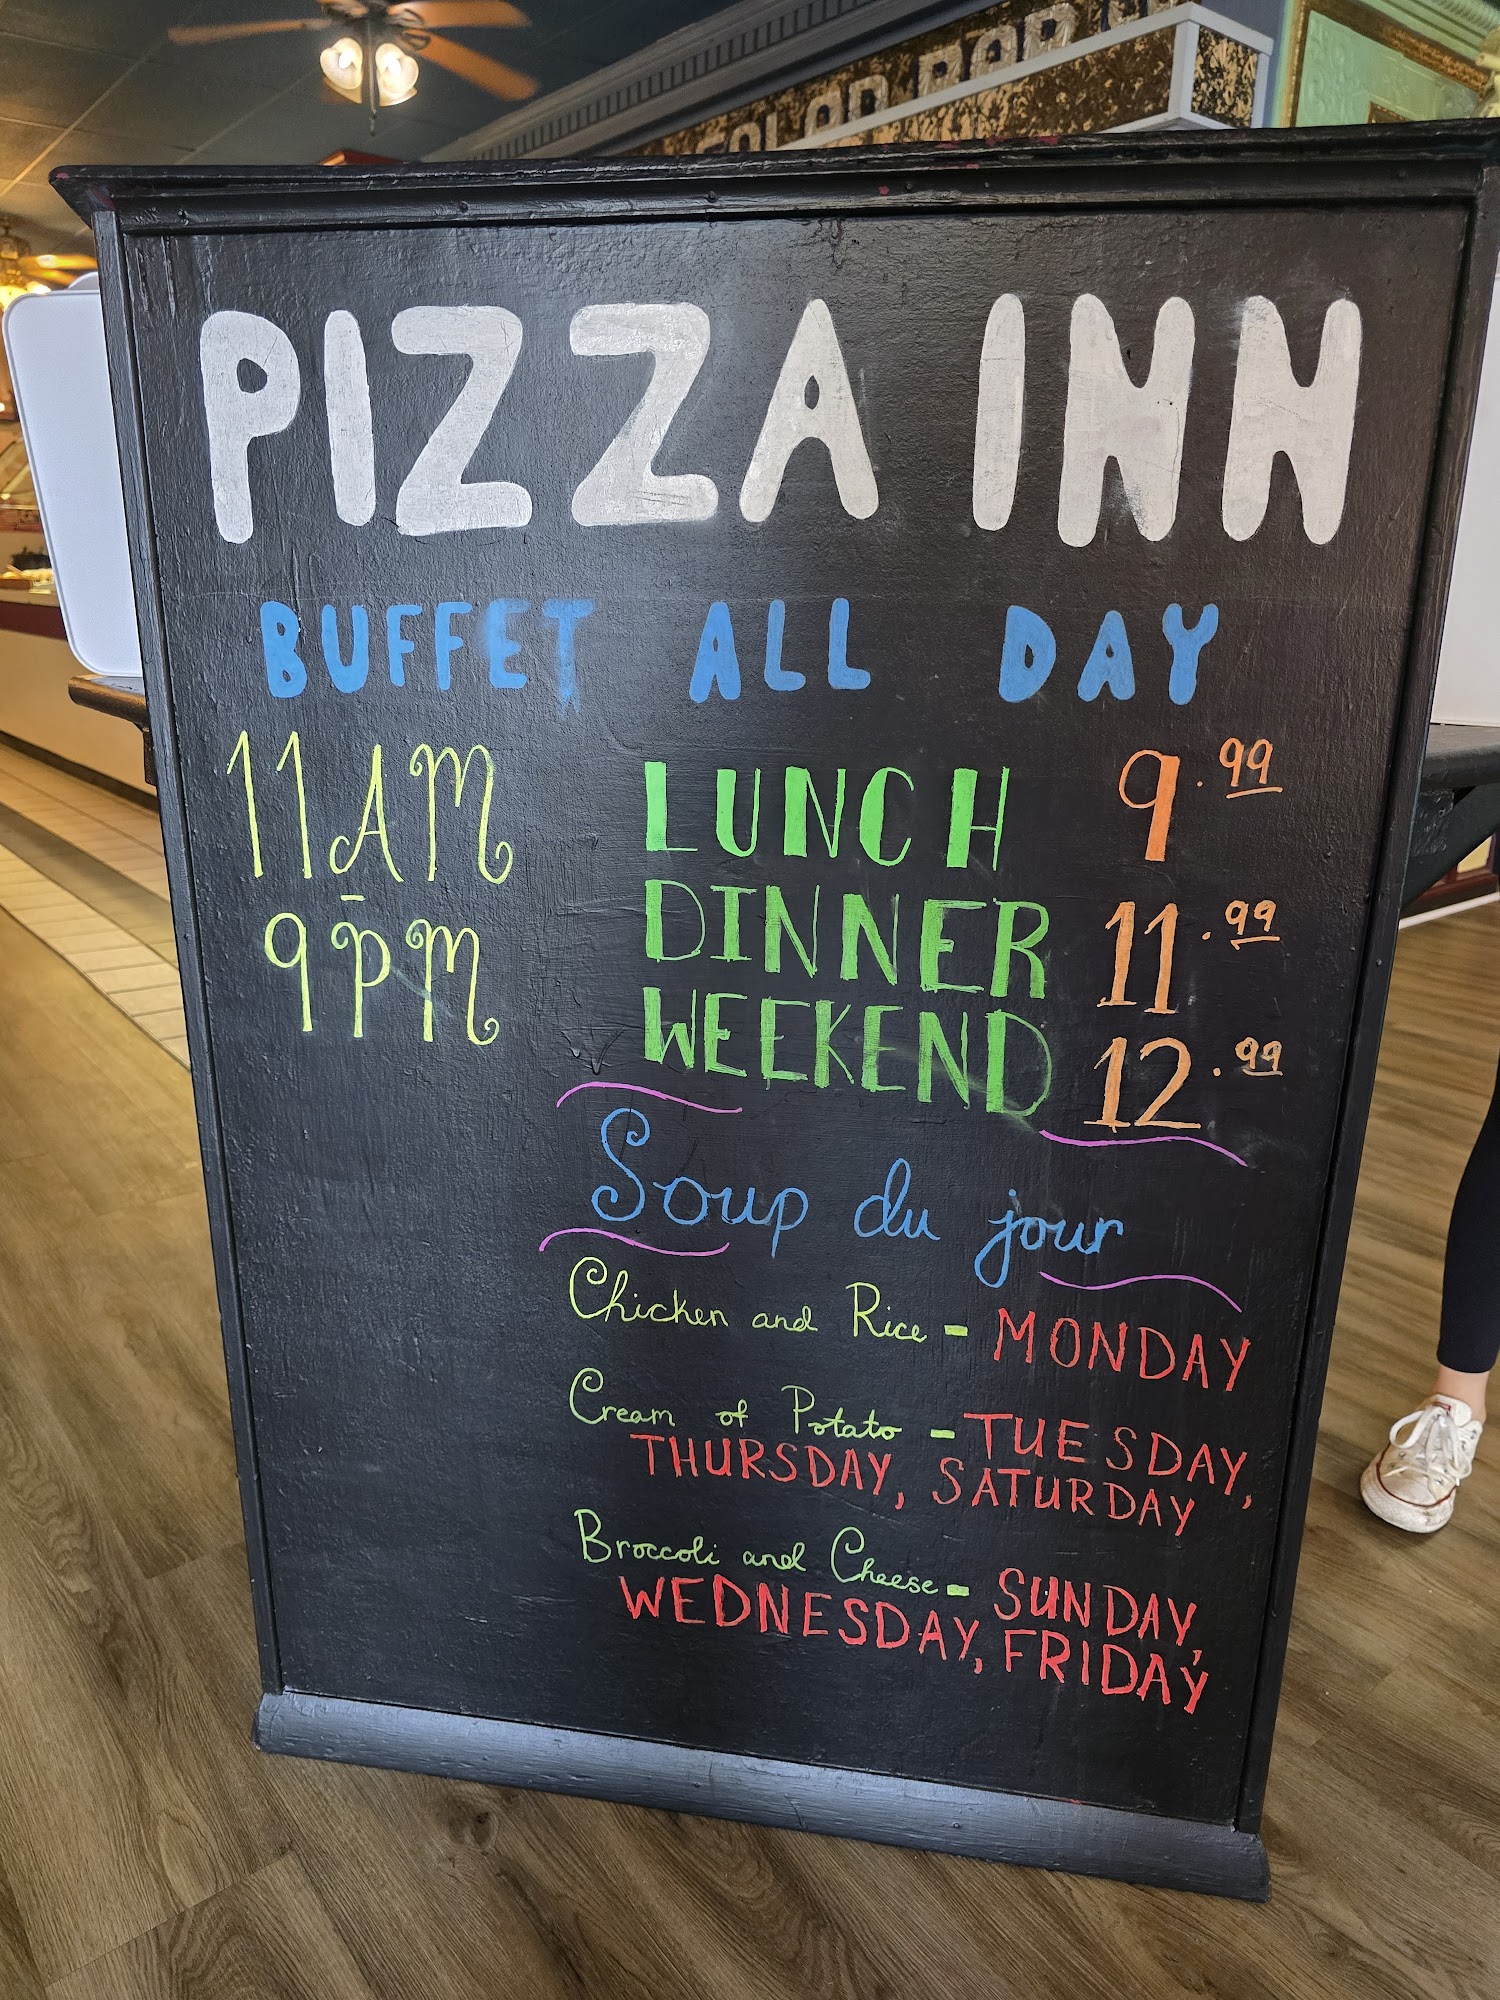 SALAD BAR
PIZZA INN
BUFFET ALL DAY
11AM
-
9PM
LUNCH 9.99
DINNER 11.99
WEEKEND 12.99
Soup du jour
Chicken and Rice - MONDAY
Cream of Potato - TUESDAY,
THURSDAY, SATURDAY
Broccoli and Cheese - SUNDAY,
WEDNESDAY, FRIDAY